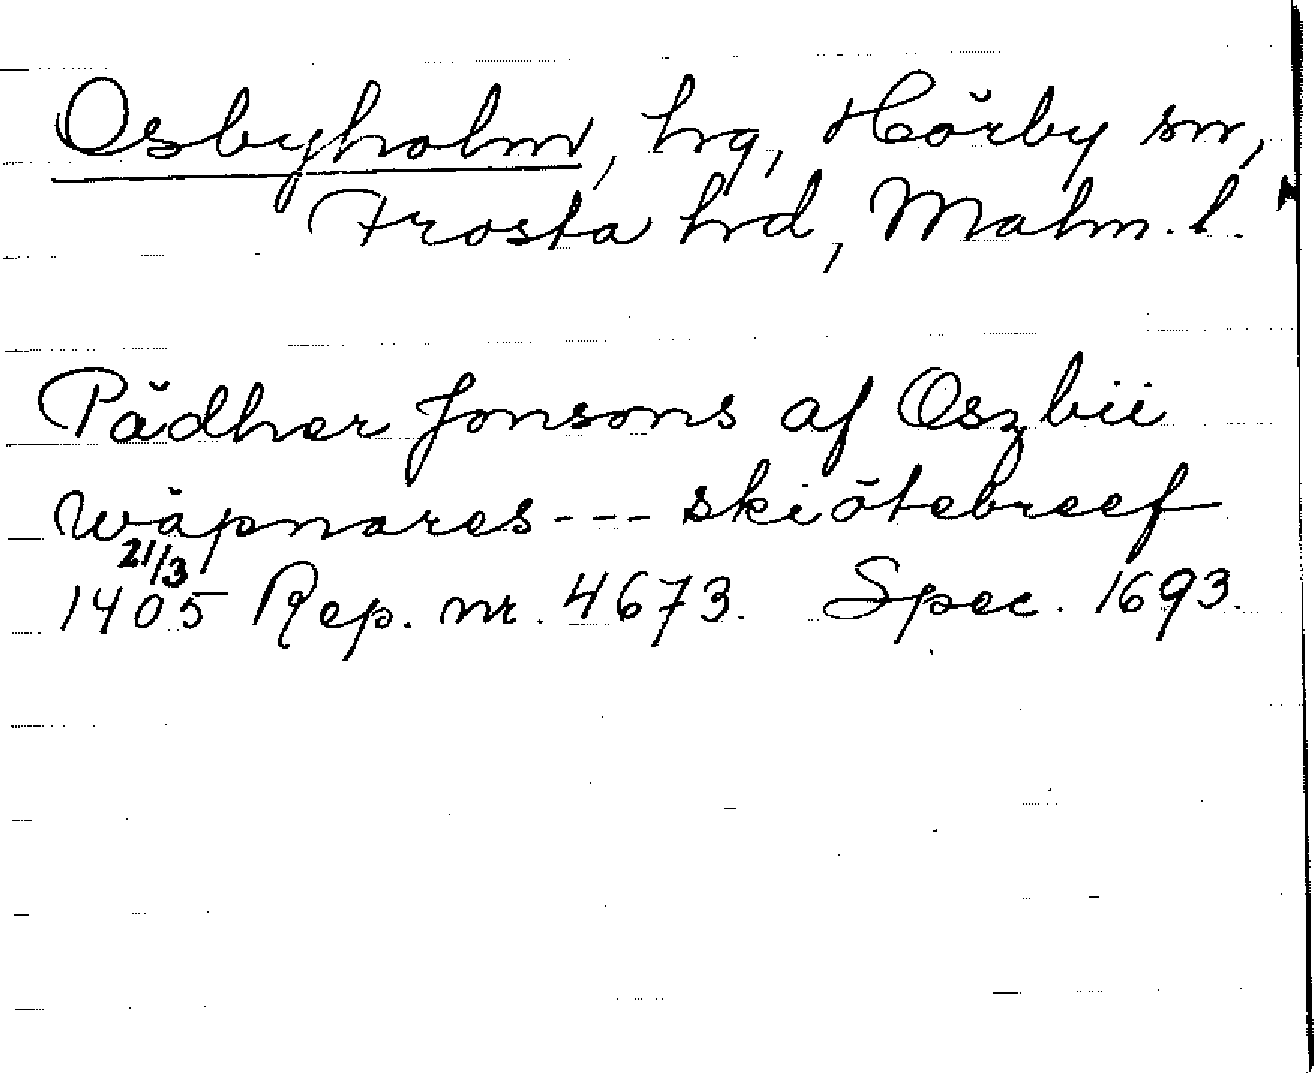 Osbyholm, hrg, Hörby sn,
Frosta hrd, Malm. l.
Pädher Jonsons af Oszbii
wäpnares --- skiötebreef
21/3
1405 Rep. nr. 4673. Spec. 1693.